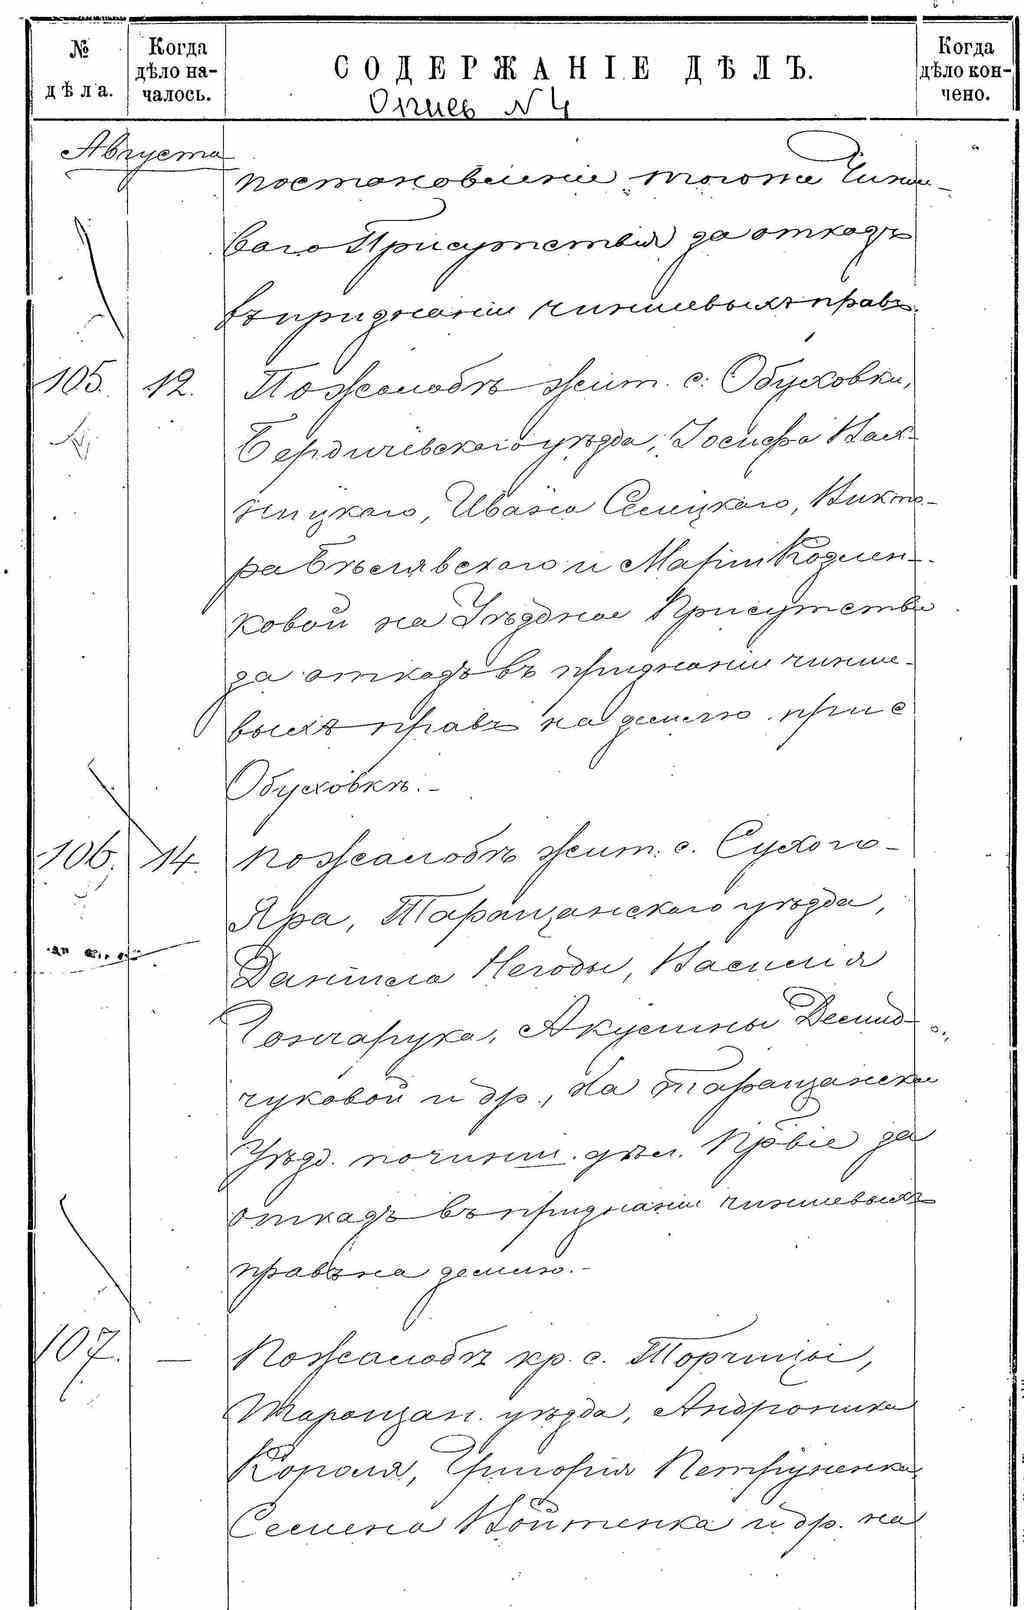 № дѣла.
Когда дѣло на-чалось.
СОДЕРЖАНІЕ ДѢЛЪ.
Когда дѣло кон-чено.
Опись № 4
Августа
постановленіе тогоже Чинше-
ваго Присутствія за отказъ
въ признаніи чиншевыхъ правъ.
105. 12. По жалобѣ жит. с. Обуховки,
Бердичевскаго уѣзда, Іосифа
ницкаго, Ивана Селицкаго, Викто-
ра Бѣлявскаго и Маріи Козлен-
ковой на Уѣздное Присутствіе
за отказъ въ признаніи чинше-
выхъ правъ на землю при с
Обуховкѣ.-
106. 14. По жалобѣ жит. с. Сухого-
Яра, Таращанскаго уѣзда,
Даніила Негоды, Василія
Гончарука, Акулины Демид-
чуковой и др., на Таращанское
Уѣзд. по чинш. дѣл. Пр̃віе за
отказъ въ признаніи чиншевыхъ
правъ на землю.-
107. — По жалобѣ кр. с. Торчицы,
Таращан. уѣзда, Андроника
Короля, Григорія Петруненка,
Семена Войтенка и др. на